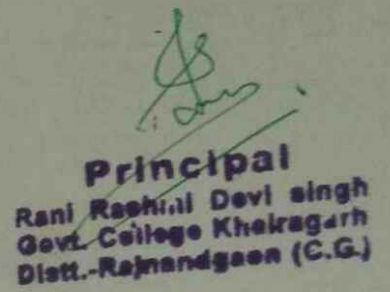 Principal
Rani Rashmi Devi singh
Govt. College Khairagarh
Distt.-Rajnandgaon (C.G.)